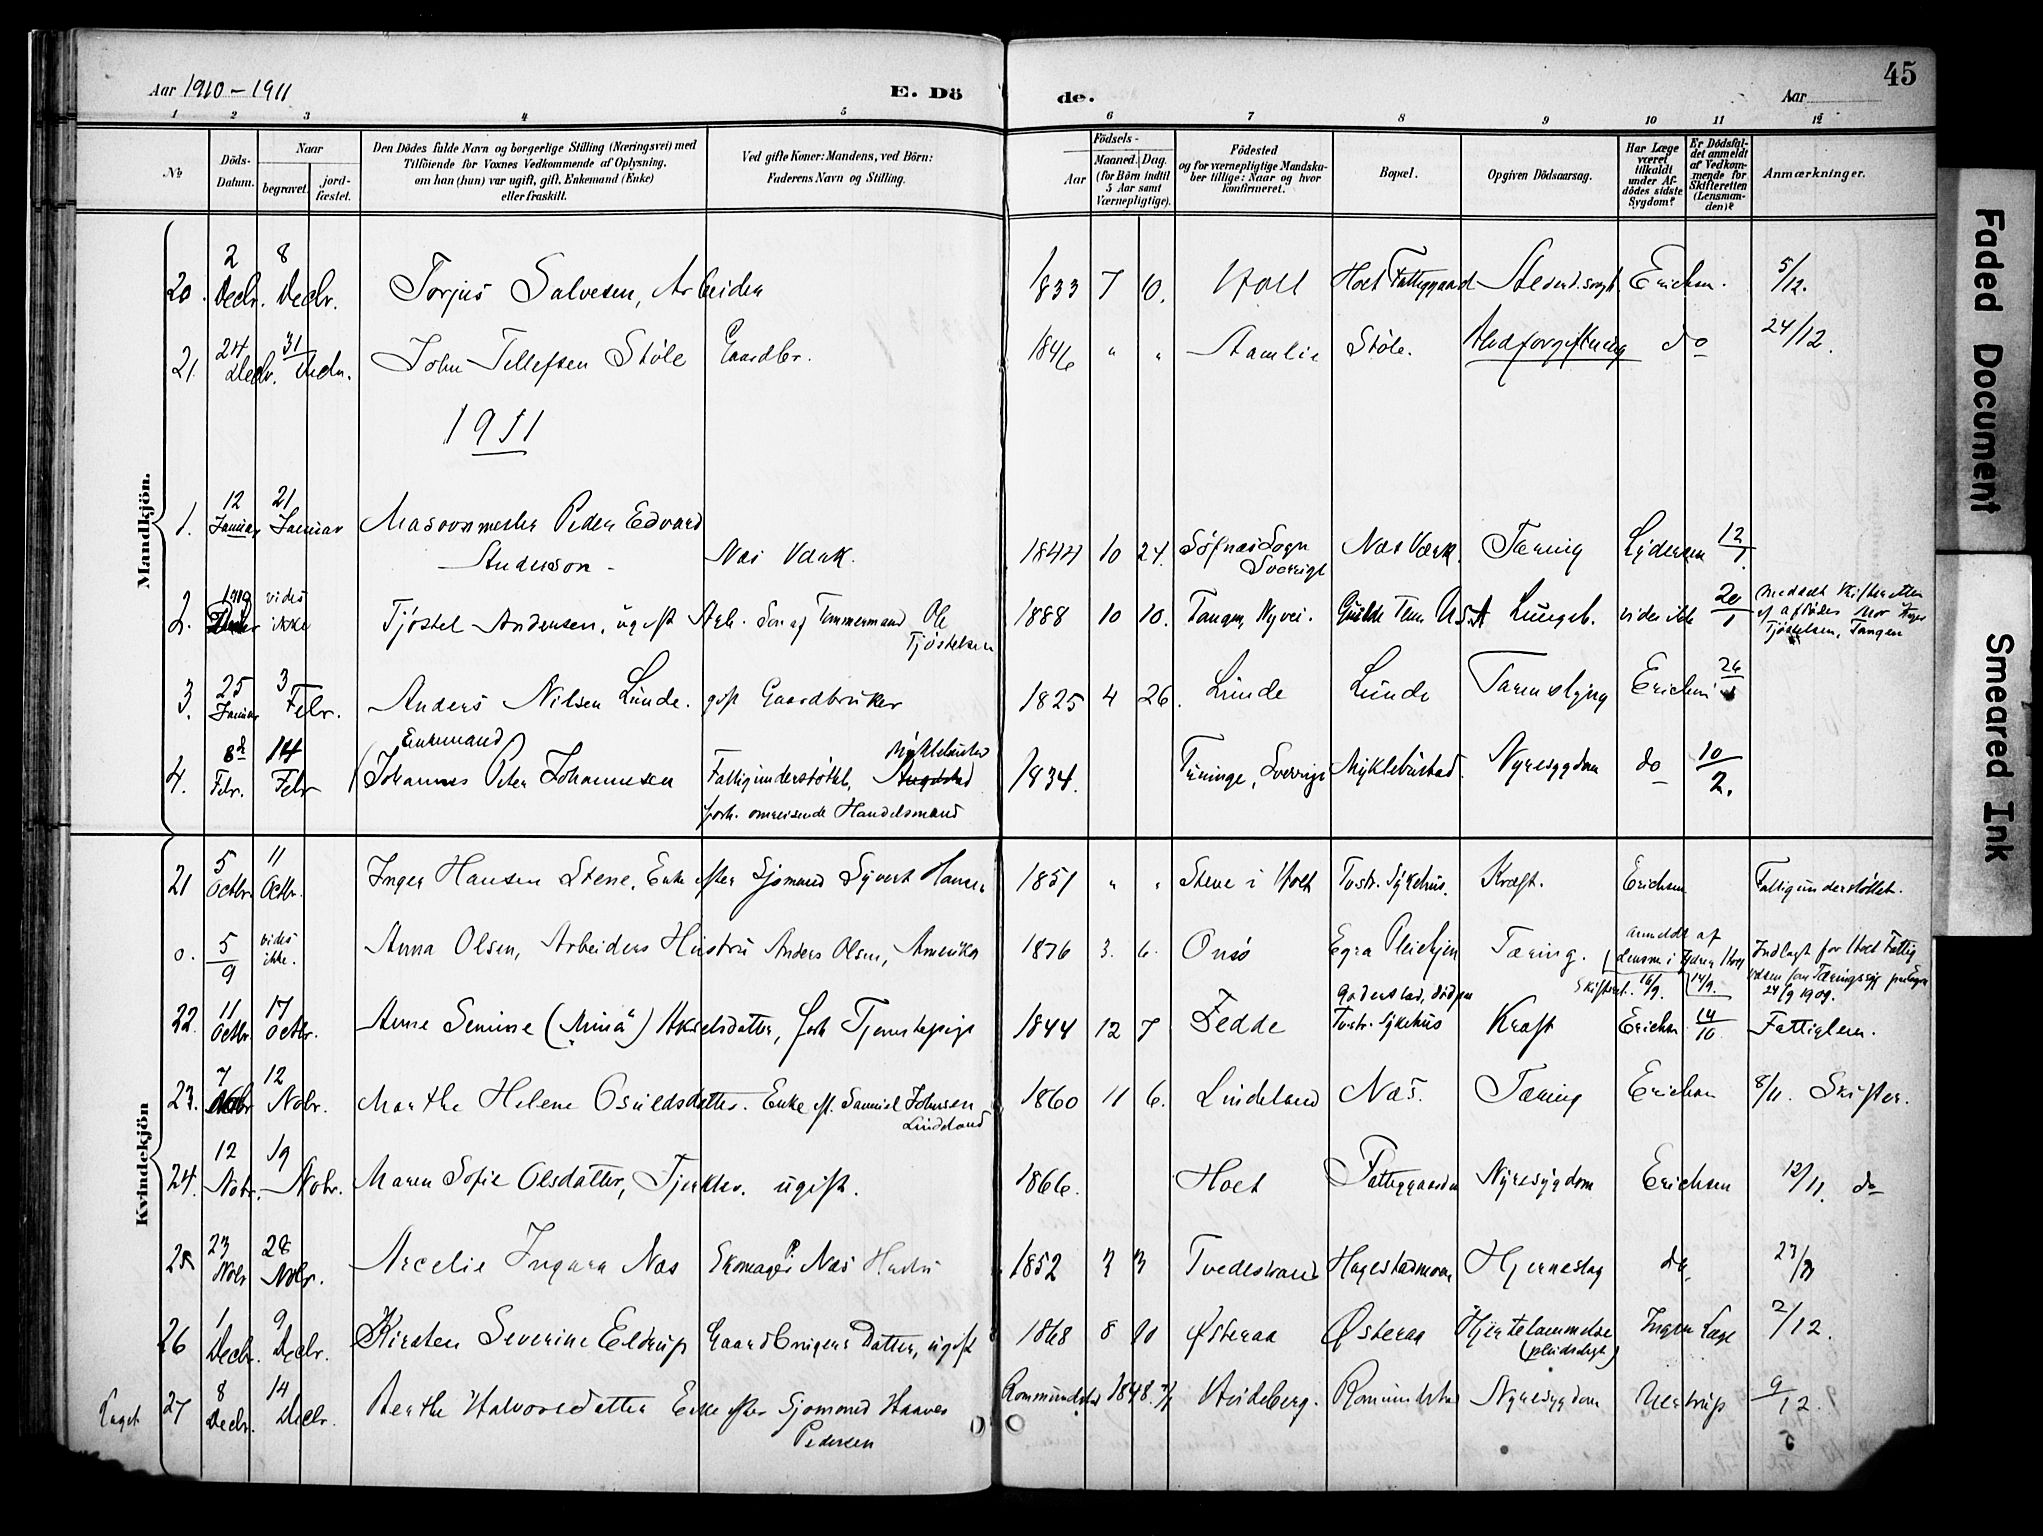 Aar 1910 – 1911
E. Dö
de.
Aar
45
1 2 3 4 5 6 7 8 9 10 11 12
No
Döds-Datum.
Naar
begravet.
jord-fæstet.
Den Dödes fulde Navn og borgerlige Stilling (Næringsvei) med
Tilföiende for Voxnes Vedkommende af Oplysning,
om han (hun) var ugift, gift, Enkemand (Enke)
eller fraskilt.
Ved gifte Koner: Mandens, ved Börn:
Faderens Navn og Stilling.
Födsels-
Aar
Maaned. Dag.
(for Börn indtil
5 Aar samt
Værnepligtige).
Födested
og for værnepligtige Mandska-
ber tillige: Naar og hvor
konfirmeret.
Bopæl.
Opgiven Dödsaarsag.
Har Læge
været
tilkaldt
under Af-
dödes sidste
Sygdom?
Er Dödsfal-
det anmeldt
af Vedkom-
mende for
Skifteretten
(Lensman-
den)?
Anmærkninger.
Mandkjön.
20. 2 Decbr. 8 Decbr. Torjus Salvesen, Arbeider 1833 7 10. Holt Holt Fattiggaard Erichsen. 5/12.
21. 24 Decbr. 31 Decbr. John Tellefsen Støle Gaardbr. 1846 " " Aamlie Støle. Blodforgiftning do 24/12.
1911
1. 12 Januar 21 Januar Masovnmester Peder Edvard
Anderson - Næs Værk. 1844 10 24. Sogn Sverrige Næs Værk. Tæring Lydersen 12/1
2. 1910 vides ikke Tjøstel Andersen, ugift Arb. Søn af Tømmermand Ole
Tjøstelsen 1888 10 10. Tangen, Nyvei. U.S.A Lungeb. vides ikke 20/1 Tjøstelsen, Tangen
3. 25 Januar 3 Febr. Anders Nilsen Lunde. gift Gaardbruker 1825 4 26. Lunde Lunde Tarmslyng Erichsen 26/1
4. 8de Febr. 14 Febr Enkemand
Johannes Peter Johannesen Fattigunderstøttet, Myklebustad
forh. omreisende Handelsmand 1834. Sverrige Myklebustad. Nyresygdom do 10/2.
Kvindekjön
21 5 Octbr. 11 Octbr. Inger Hansen Stene, Enke efter Sjømand Syvert Hansen 1851 " " Stene i Holt Tvstr. Sykehus. Kræft. Erichsen Fattigunderstøttet.
0. 5/9 vides ikke. Anna Olsen, Arbeiders Hustru Anders Olsen, Amerika 1876 3. 6. Onsø Egra Pleiehjem Tæring. anmeldt af 16/9. 14/9. Indlagt for Holt Fattig
24/9 1909.
22. 11 Octbr. 17 Octbr. Anne Semine (Mina) Akselsdatter, forh Tjenestepige 1844 12 7 Fedde Goderstad, død paa
Tvstr. Sykehus Kræft Erichsen 14/10 Fattiglem.
23. 7 Nobr 12 Nobr. Marthe Helene Osuldsdatter. Enke ef. Samuel Johnsen
Lindeland 1860 11 6. Lindeland Næs. Tæring Erichsen 8/11. Skifter.
24. 12 Nobr. 19 Nobr. Maren Sofie Olsdatter, ugift. 1866. Holt Fattiggaarden Nyresygdom Erichsen 12/11. do
25 23 Nobr 28 Nobr. Arcelie Ingara Næs Skomager P. Næs Hustru 1852 3 3 Tvedestrand Hagestadmoen Hjerneslag do.
26 1 Decbr. 9 Decbr. Kirsten Severine Eldrup Gaardbrugers Datter, ugift 1868 8 10 Østeraa Østeraa Hjertelammelse
(pludseligt) Ingen Læge 2/12.
27 8 Decbr. 14 Decbr. Berthe Halvorsdatter Enke efter Sjømand Haaver
Pedersen 1848. Hvideberg. Romundstad Nyresygdom 9/12.
Faded Document
Smeared Ink